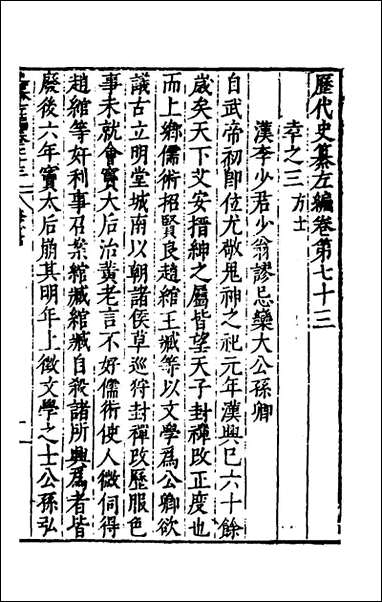 歷代史纂左編卷第七十三
幸之三 方士
漢李少君少翁謬忌欒大公孫卿
自武帝初即位尤敬鬼神之祀元年漢興巳六十餘
歲矣天下艾安搢紳之屬皆望天子封禪改正度也
而上鄉儒術招賢良趙綰王臧等以文學爲公卿欲
議古立明堂城南以朝諸侯草巡狩封禪改歷服色
事未就會竇太后治黃老言不好儒術使人微伺得
趙綰等奸利事召案綰臧綰臧自殺諸所興爲者皆
廢後六年竇太后崩其明年上徵文學之士公孫弘